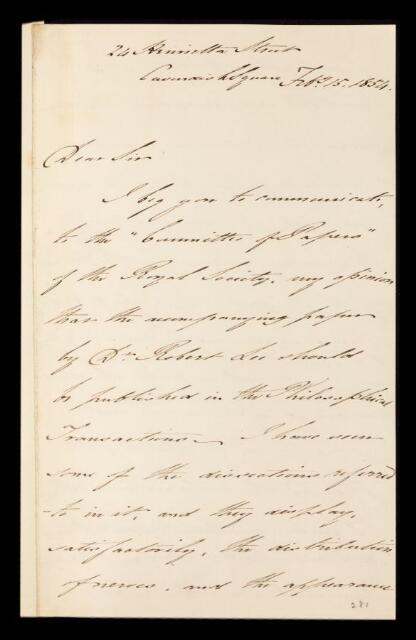 24 Henrietta Street
Cavendish Square Feby. 15. 1854.
Dear Sir
I beg you to communicate,
to the "Committee of Papers"
of the Royal Society, my opinion
that the accompanying paper
by Dr. Robert Lee should
be published in the Philosophical
Transactions. I have seen
some of the dissections referred
-to in it, and they display,
satisfactorily, the distribution
of nerves, and the appearance
281